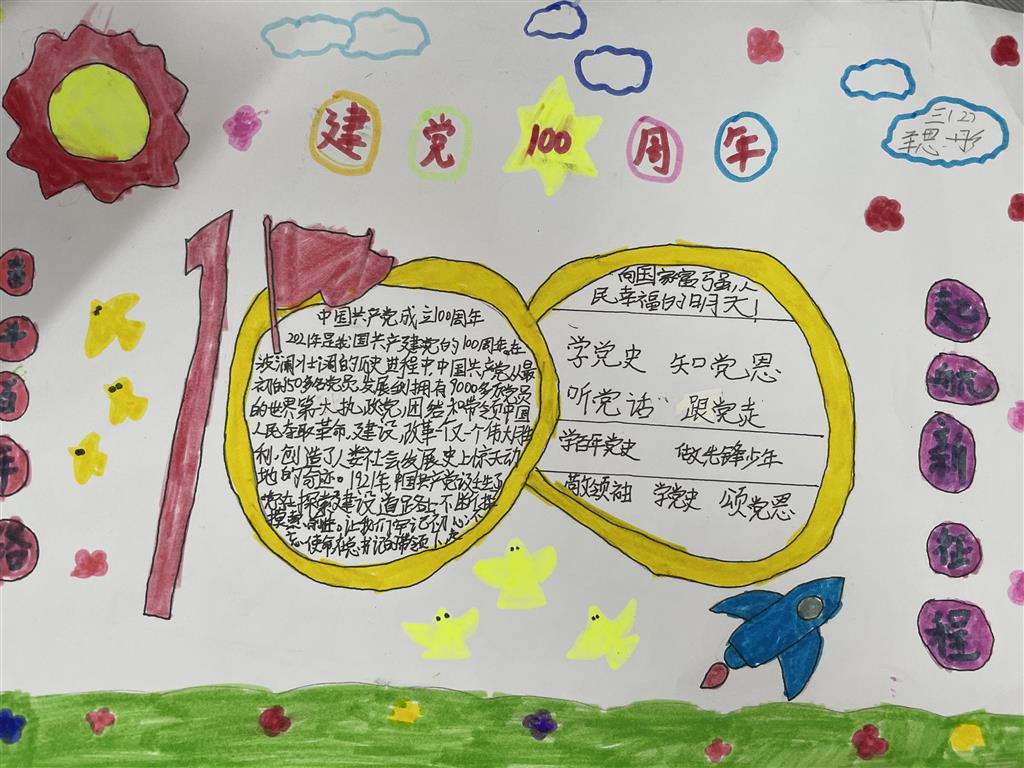 建党100周年
三(2)
中国共产党成立100周年
2021年是我国共产建党的100周年在
波澜壮阔的历史进程中,中国共产党从最
初的50多名党员,发展到拥有9000多万党员
的世界第一大执政党,团结和带领中国
人民夺取革命,建设,改革一个又一个伟大胜
利,创造了人类社会发展史上惊天动
地的奇迹。1921年中国共产党诞生了
党在探索建设道路上不断
让我们牢记初心不
忘使命在总书记的带领下走
向国家富强,人
民幸福的明天!
学党史 知党恩
听党话 跟党走
学百年党史 做先锋少年
学党史 颂党恩
起航新征程